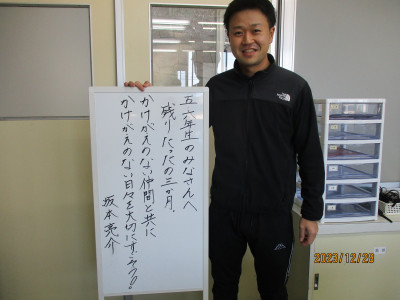 五六年生のみなさんへ
残りたったの三か月、
かけがえのない仲間と共に
かけがえのない日々を大切にすごそう!!
坂本亮介
THE NORTH FACE
2023/12/20